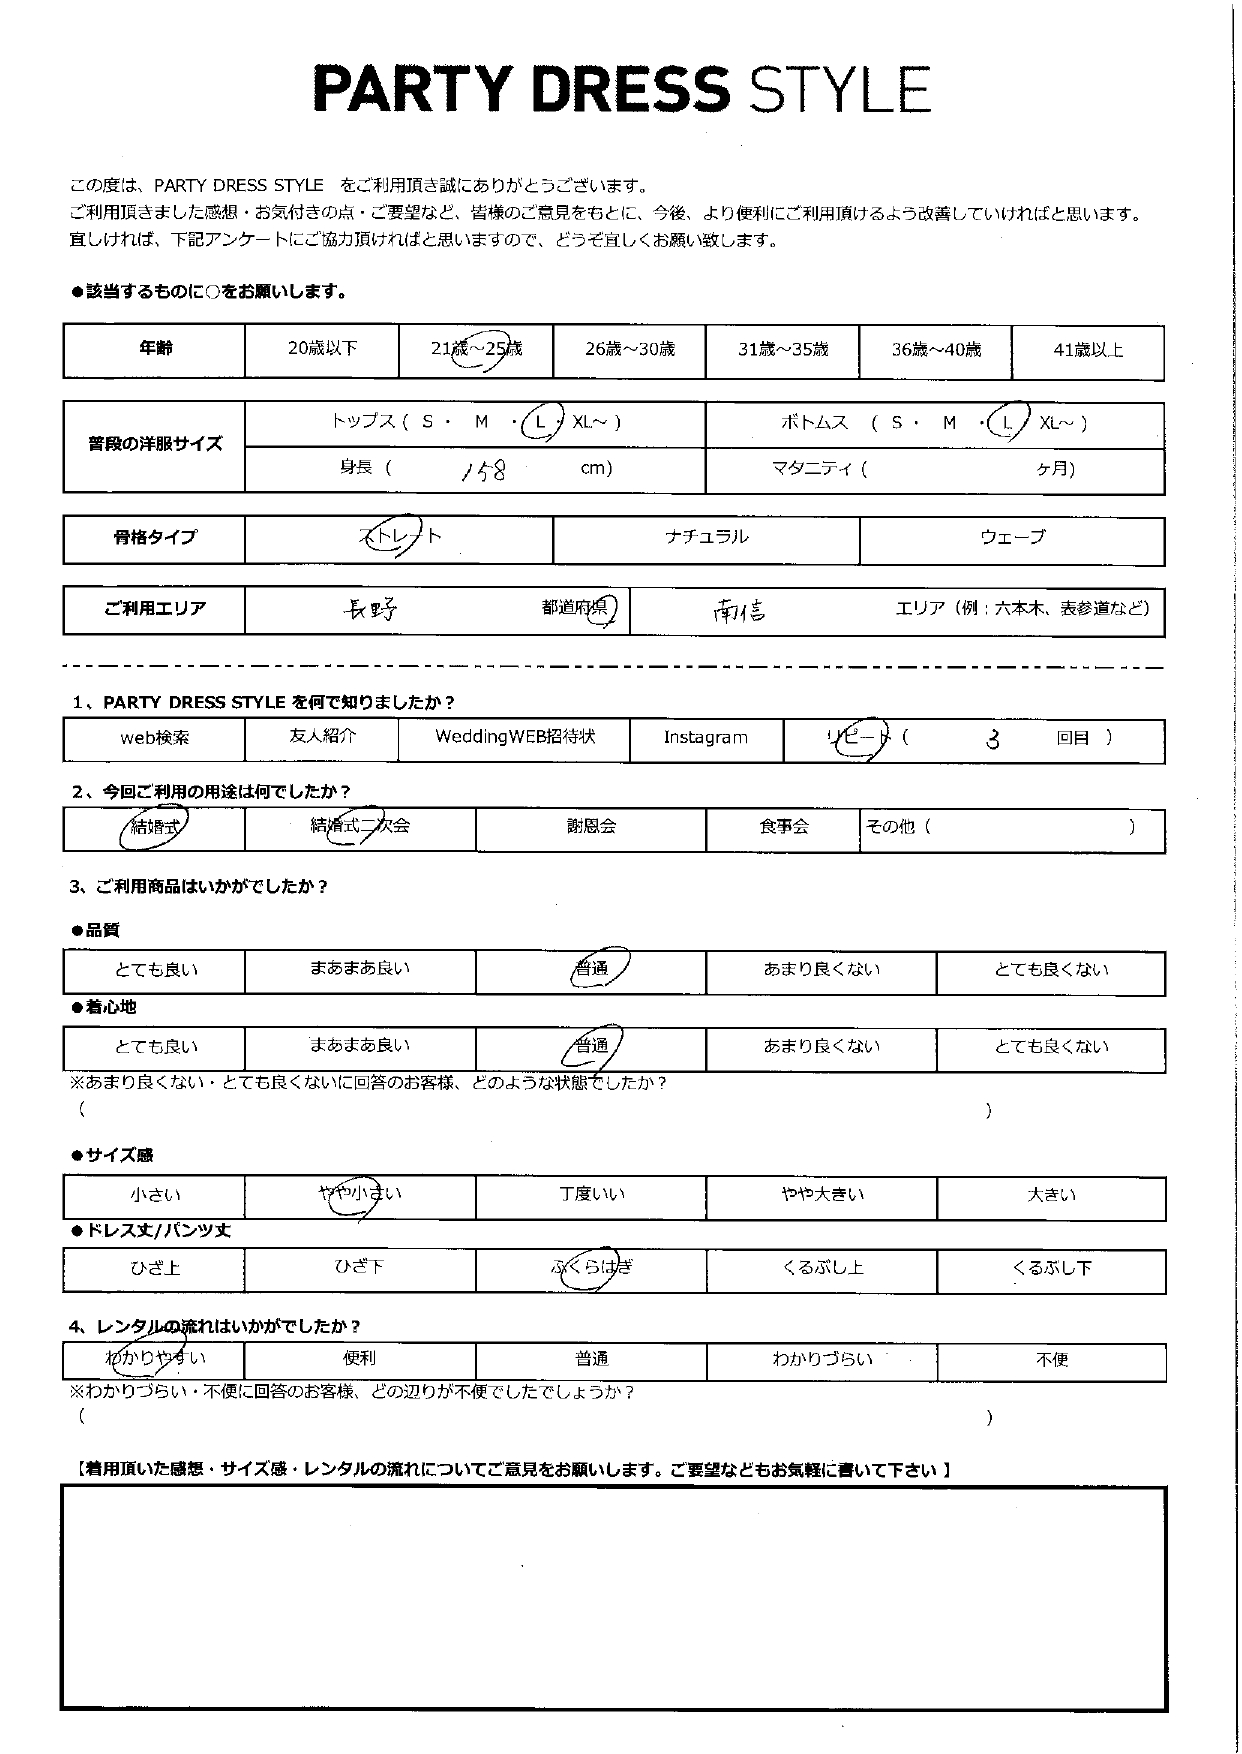 PARTY DRESS STYLE
この度は、PARTY DRESS STYLE をご利用頂き誠にありがとうございます。
ご利用頂きました感想・お気付きの点・ご要望など、皆様のご意見をもとに、今後、より便利にご利用頂けるよう改善していければと思います。
宜しければ、下記アンケートにご協力頂ければと思いますので、どうぞ宜しくお願い致します。
●該当するものに○をお願いします。
年齢 20歳以下 21歳～25歳 26歳～30歳 31歳～35歳 36歳～40歳 41歳以上
普段の洋服サイズ トップス ( S ・ M ・ L ・ XL～ ) ボトムス ( S ・ M ・ L XL～ )
身長 ( 158 cm) マタニティ ( ヶ月)
骨格タイプ ストレート ナチュラル ウェーブ
ご利用エリア 長野 都道府県 南信 エリア（例：六本木、表参道など）
1、PARTY DRESS STYLE を何で知りましたか？
web検索 友人紹介 WeddingWEB招待状 Instagram リピート ( 3 回目 )
2、今回ご利用の用途は何でしたか？
結婚式 結婚式二次会 謝恩会 食事会 その他 ( )
3、ご利用商品はいかがでしたか？
●品質
とても良い まあまあ良い 普通 あまり良くない とても良くない
●着心地
とても良い まあまあ良い 普通 あまり良くない とても良くない
※あまり良くない・とても良くないに回答のお客様、どのような状態でしたか？
( )
●サイズ感
小さい やや小さい 丁度いい やや大きい 大きい
●ドレス丈/パンツ丈
ひざ上 ひざ下 ふくらはぎ くるぶし上 くるぶし下
4、レンタルの流れはいかがでしたか？
わかりやすい 便利 普通 わかりづらい 不便
※わかりづらい・不便に回答のお客様、どの辺りが不便でしたでしょうか？
( )
【着用頂いた感想・サイズ感・レンタルの流れについてご意見をお願いします。ご要望などもお気軽に書いて下さい】